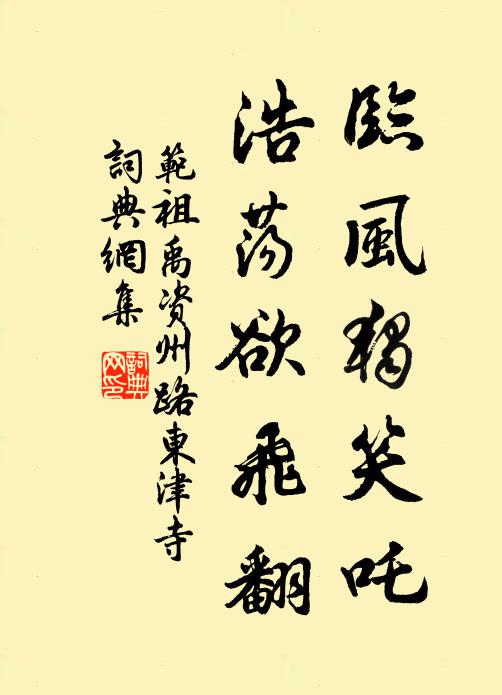 臨風獨笑吒
浩蕩欲飛翻
範祖禹資州路東津寺
詞典網集
詞典
网印